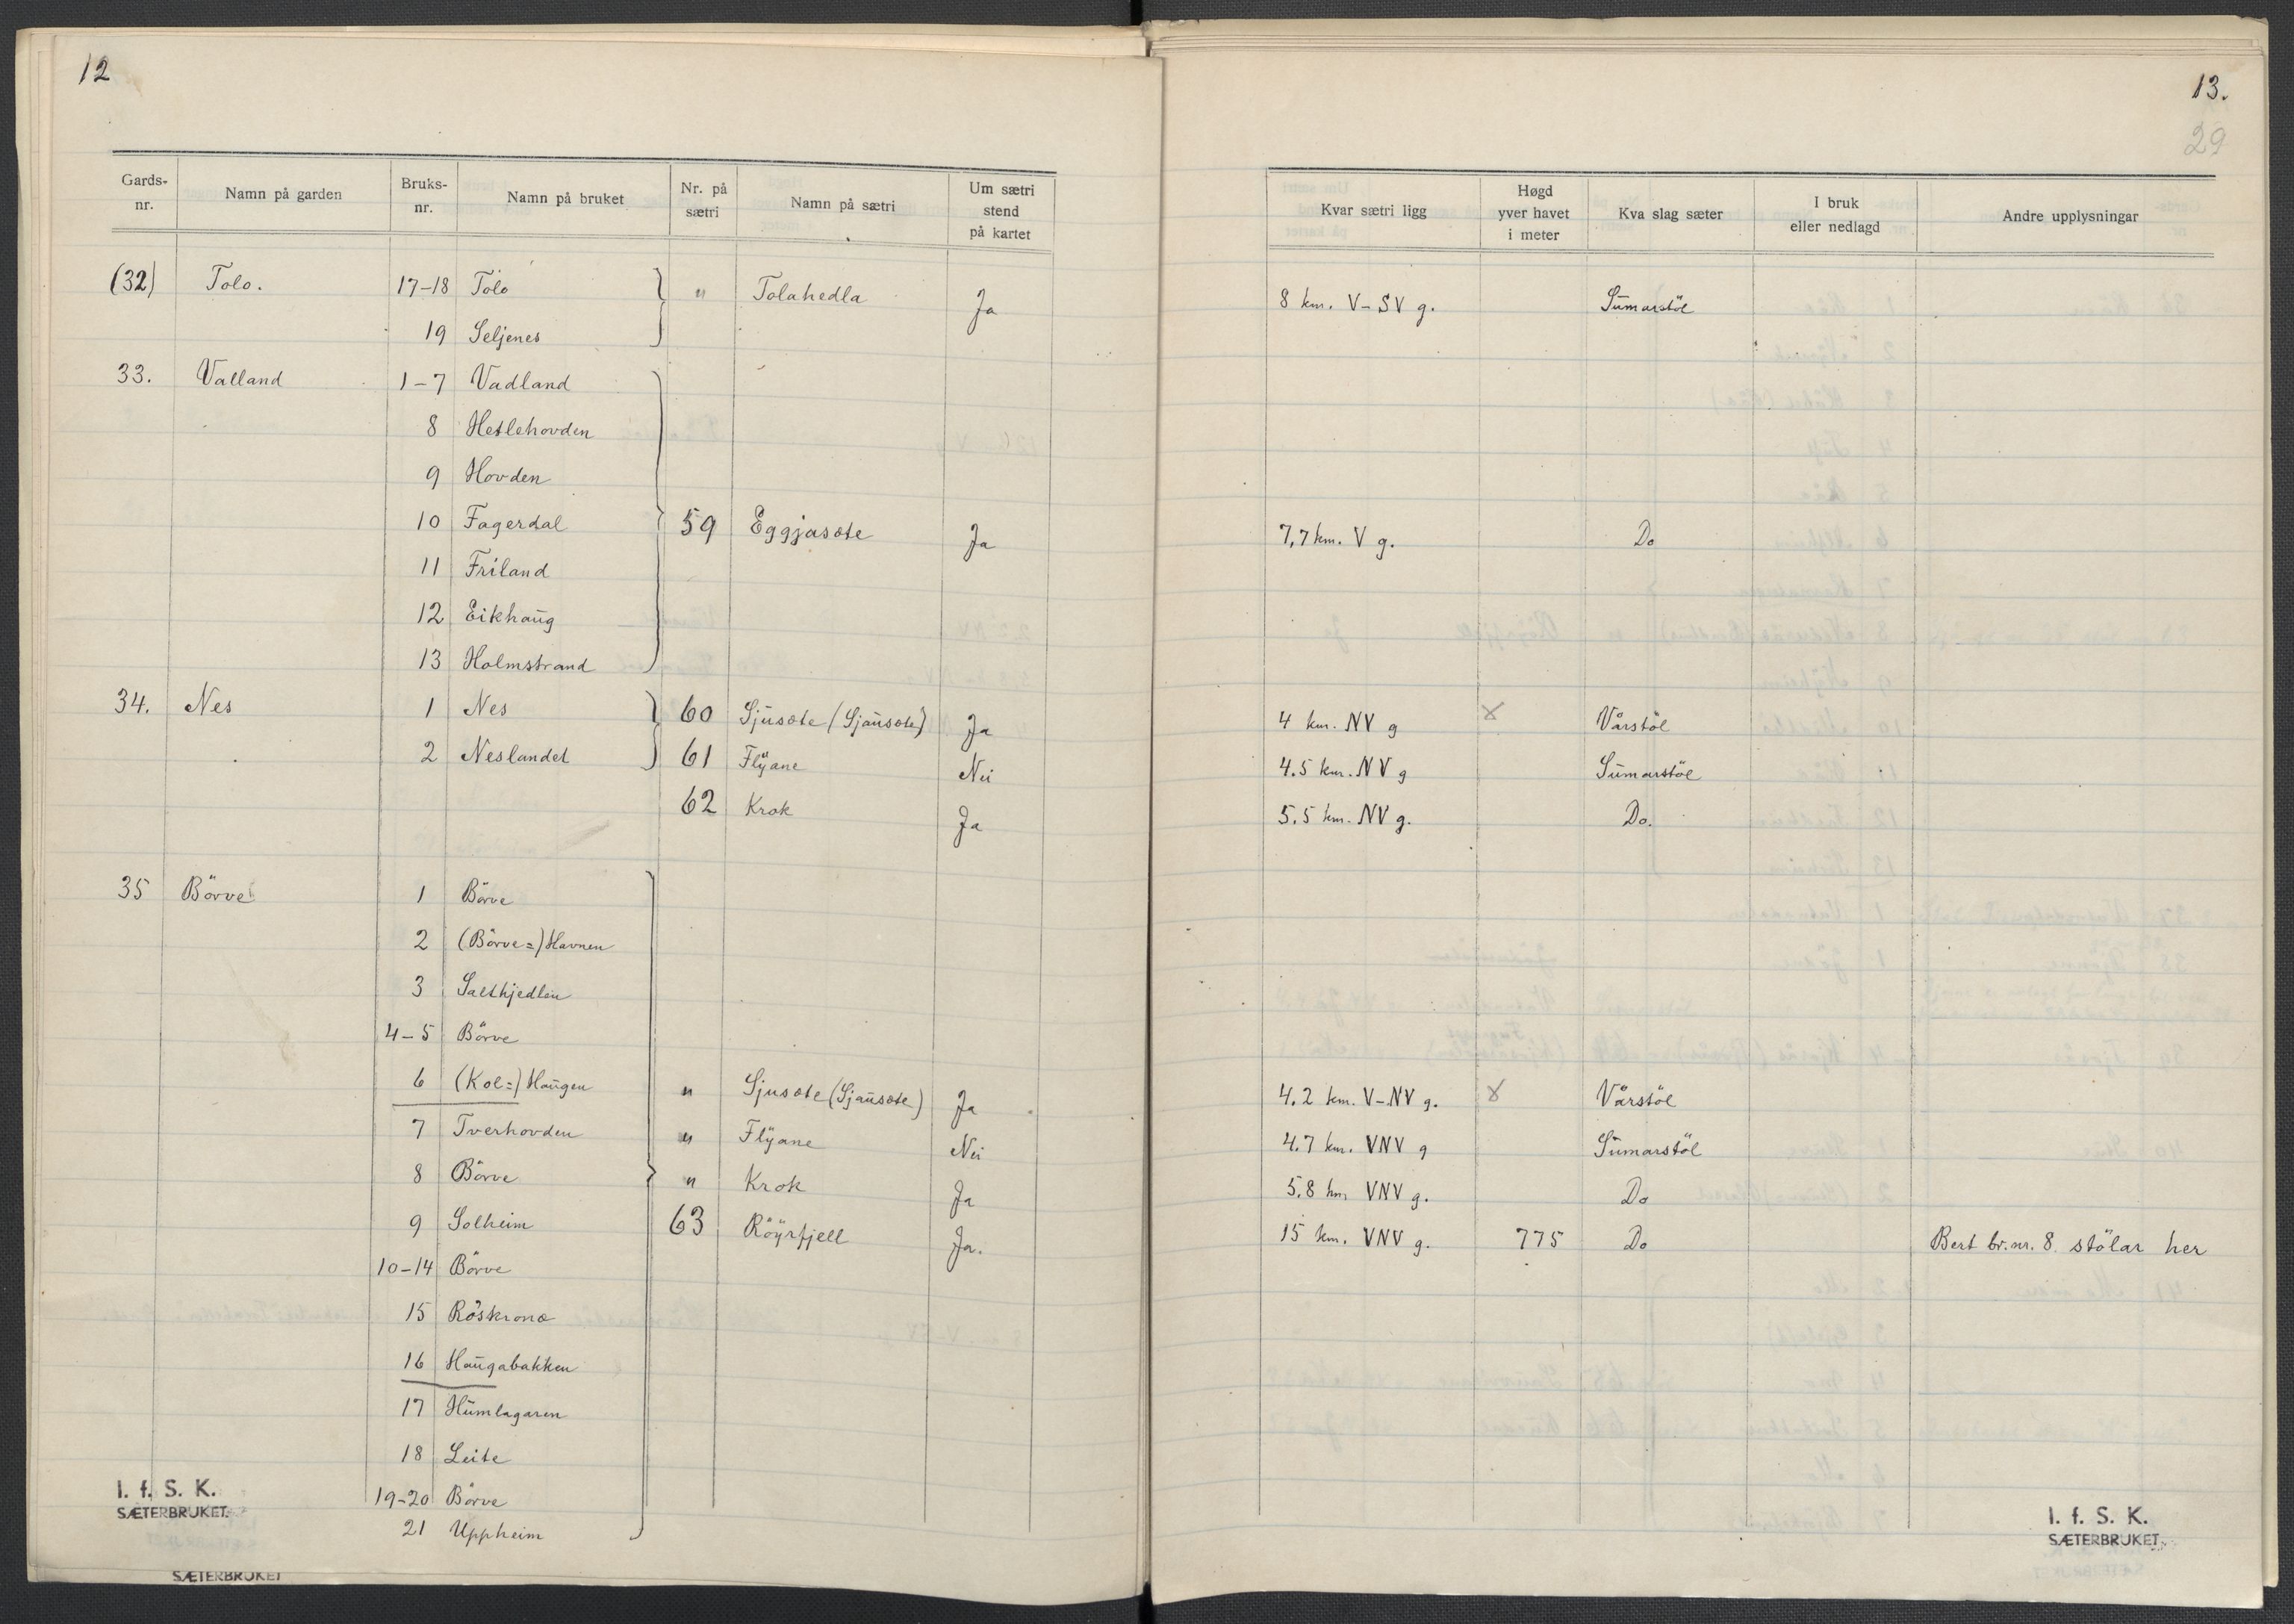 12
Gards-nr. Namn på garden Bruks-nr. Namn på bruket Nr. på sætri Namn på sætri Um sætri stend på kartet
(32) Tolo. 17-18 Tolo " Tolahedla Ja
19 Seljenes
33. Valland 1-7 Vadland
8 Hetlehovden
9 Hovden
10 Fagerdal 59 Eggjasøte Ja
11 Friland
12 Eikhaug
13 Holmstrand
34. Nes 1 Nes 60 Sjusøte (Sjausøte) Ja
2 Neslandet 61 Flyane Nei
62 Krok Ja
35 Börve 1 Börve
2 (Börve=) Havnen
3 Salthjedlen
4-5 Börve
6 (Kol=) Haugen " Sjusøte (Sjausøte) Ja
7 Tverhovden " Flyane Nei
8 Börve " Krok Ja
9 Solheim 63 Röyrfjell Ja.
10-14 Börve
15 Röskrona
16 Haugabakken
17 Humlagaren
18 Leite
19-20 Börve
21 Uppheim
I. f. S. K.
SÆTERBRUKET
SÆTERBRUKET
13.
29
Kvar sætri ligg Høgd yver havet i meter Kva slag sæter I bruk eller nedlagd Andre upplysningar
8 km. V-SV g. Sumarstöl
7,7 km. V g. Do
4 km. NV g x Vårstöl
4.5 km. NV g Sumarstöl
5.5 km. NV g. Do.
4.2 km. V-NV g. x Vårstöl
4.7 km. VNV g Sumarstöl
5.8 km VNV g. Do
15 km. VNV g. 775 Do Bert br.nr. 8 stölar her
I. f. S. K.
SÆTERBRUKET